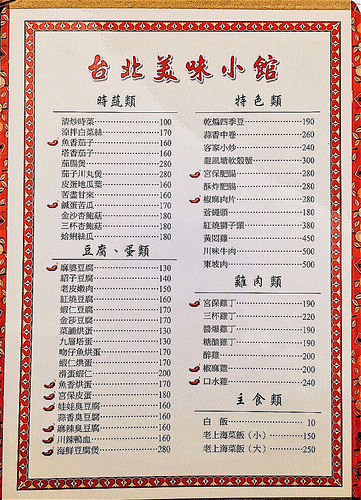 台北美味小館
時蔬類
清炒時菜 100
涼拌白菜絲 170
魚香茄子 160
塔香茄子 160
茄腸煲 280
茄子川丸煲 280
皮蛋地瓜葉 160
苦盡甘來 160
鹹蛋苦瓜 170
金沙杏鮑菇 180
三杯杏鮑菇 180
蛤蜊絲瓜 180
豆腐、蛋類
麻婆豆腐 130
紹子豆腐 140
老皮嫩肉 150
紅燒豆腐 160
蝦仁豆腐 170
金莎豆腐 170
菜脯烘蛋 130
九層塔蛋 130
吻仔魚烘蛋 170
蝦仁烘蛋 170
滑蛋蝦仁 200
魚香烘蛋 170
宮保皮蛋 180
娃娃臭豆腐 160
蒜香臭豆腐 160
麻辣臭豆腐 160
川辣鴨血 160
海鮮豆腐煲 280
特色類
乾煸四季豆 190
蒜香中卷 260
客家小炒 240
避風塘軟殼蟹 300
宮保肥腸 280
酥炸肥腸 280
椒麻肉片 280
蒼蠅頭 180
紅燒獅子頭 380
黃悶雞 450
川味牛肉 500
東坡肉 500
雞肉類
宮保雞丁 190
三杯雞丁 220
醬爆雞丁 190
糖醋雞丁 190
醉雞 200
椒麻雞 200
口水雞 240
主食類
白 飯 10
老上海菜飯（小） 150
老上海菜飯（大） 250